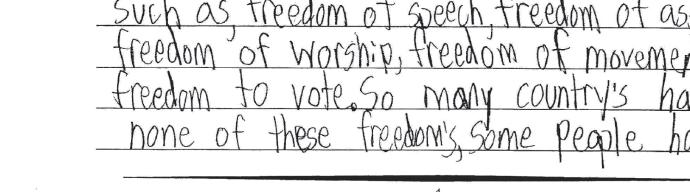 such as freedom of speech, freedom of as
freedom of worship, freedom of movemen
freedom to vote. So many country's ha
none of these freedom's, some people ha